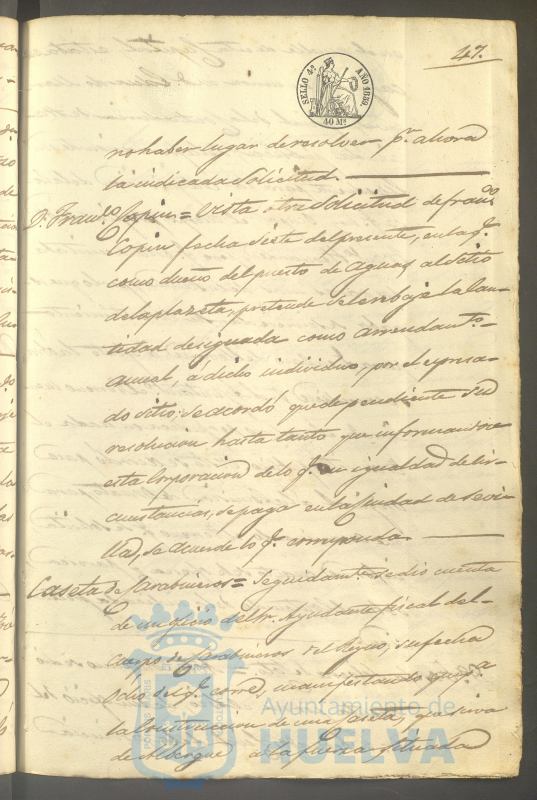 47.
SELLO 4º AÑO 1859.
40 Ms
no haber lugar de resolver pr. ahora
la indicada Solicitud.
Dn. Franco. Copin = Vista otra Solicitud de Franco.
Copin fecha siete del presente, en la q.
como dueño del puesto de Aguas al sitio
de la plazeta, pretende se le rebaje la can-
tidad designada como arrendamto.
anual, á dicho individuo, por el expresa-
do sitio: se acordó quede pendiente su
resolucion hasta tanto que informandose
esta Corporacion de lo q. en igualdad de cir-
cunstancias, se paga en la Ciudad de Sevi-
lla, se acuerde lo q. corresponda.
Caseta de Carabineros = Seguidamte. se dio cuenta
de un oficio del Sr. Ayudante fiscal del
cuerpo de Carabineros del Reyno, su fecha
ocho del q. corre, manifestando que pa
la Construccion de una Caseta, que sirva
de Albergue a la fuerza situada
Ayuntamiento de
HUELVA